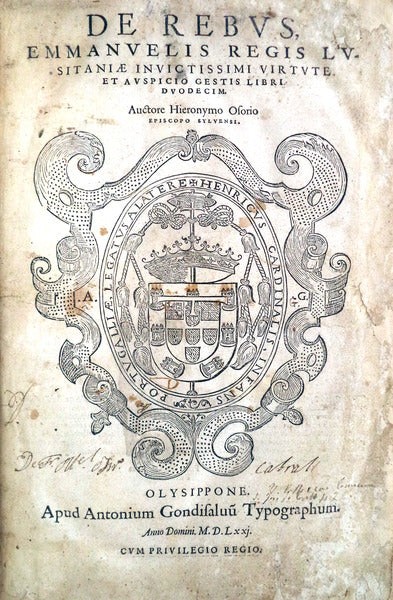 DE REBVS,
EMMANVELIS REGIS LV-
SITANIÆ INVICTISSIMI VIRTVTE
ET AVSPICIO GESTIS LIBRI
DVODECIM.
Auctore Hieronymo Osorio
EPISCOPO SYLVENSI.
HENRICVS CARDINALIS INFANS PORTVGALLIÆ LEGATVS A LATERE
I. A. G
cabral
OLYSIPPONE.
Apud Antonium Gondisaluũ Typographum.
Anno Domini. M. D. Lxxj.
CVM PRIVILEGIO REGIO.